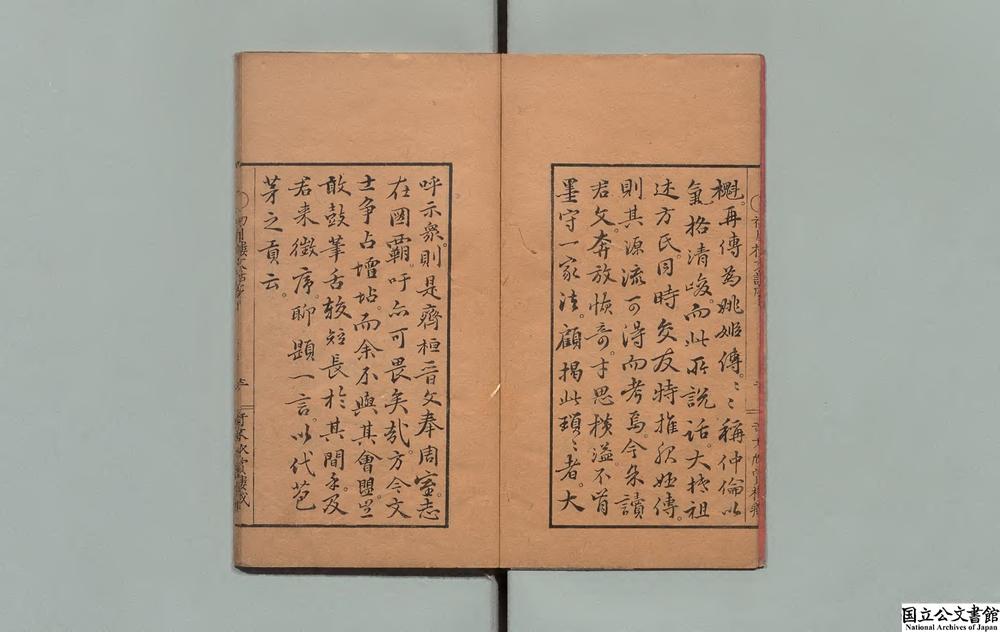 櫆。再傳為姚姬傳。〻〻稱仲倫以
氣格清峻。而此所説話。大抵祖
述方氏。同時交友特推服姬傳。
則其源流可得而考焉。今朱讀
君文。奔放恢奇。才思横溢。不肯
墨守一家法。顧揭此頊〻者。大
呼示衆。則是齊桓晉文奉周室。志
在圖霸。吁亦可畏矣哉。方今文
士爭占壇坫。而余不與其會盟。豈
敢鼓筆舌較短長於其間乎。及
君来徵序。聊題一言。以代苞
茅之貢云。
国立公文書館
National Archives of Japan